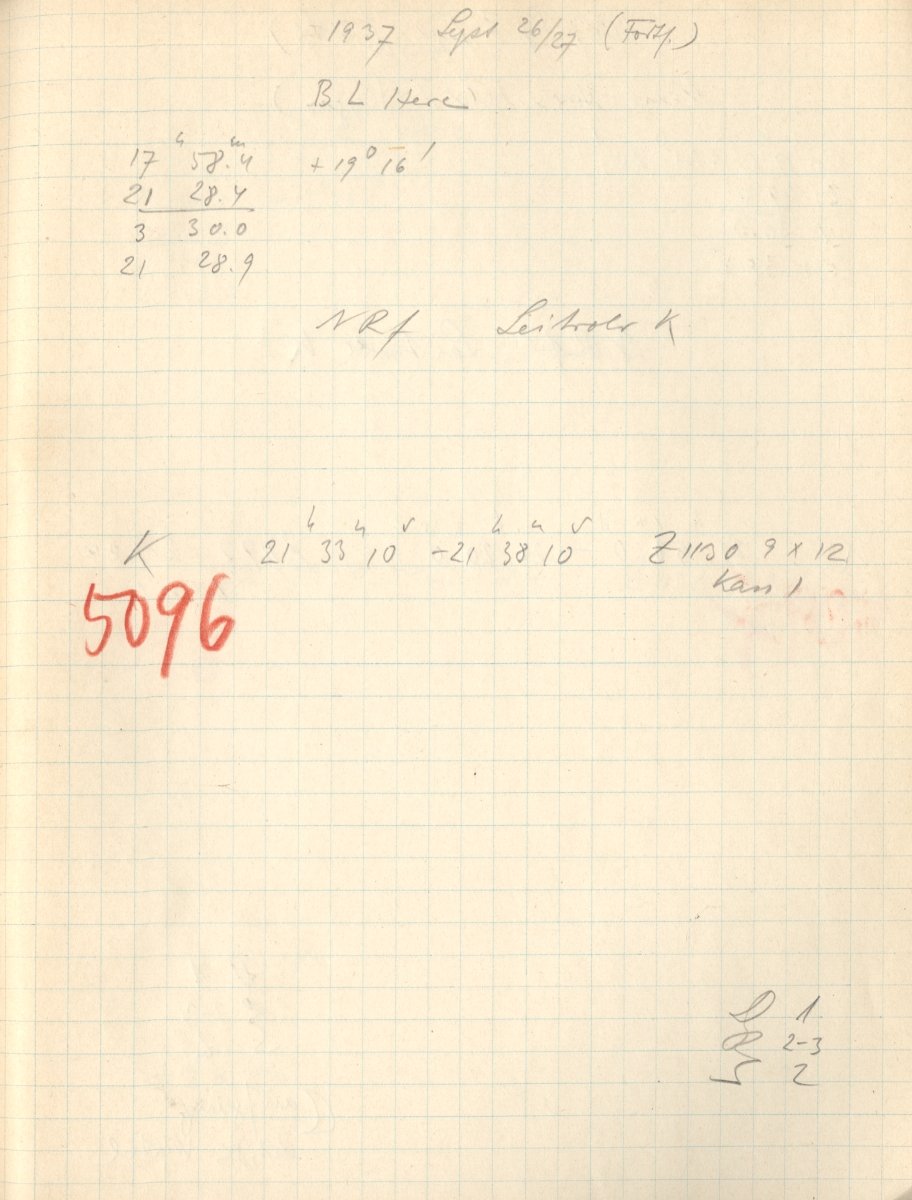 1937 Sept 26/27 (Forts.)
BL Herc
17ʰ 58.4ᵐ + 19° 16'
21 28.4
3 30.0
21 28.9
NRf Leitrohr K
K 21ʰ 33ᵐ 10ˢ - 21ʰ 38ᵐ 10ˢ Z 1130 9 x 12
Kass 1
5096
D 1
R 2-3
S 2